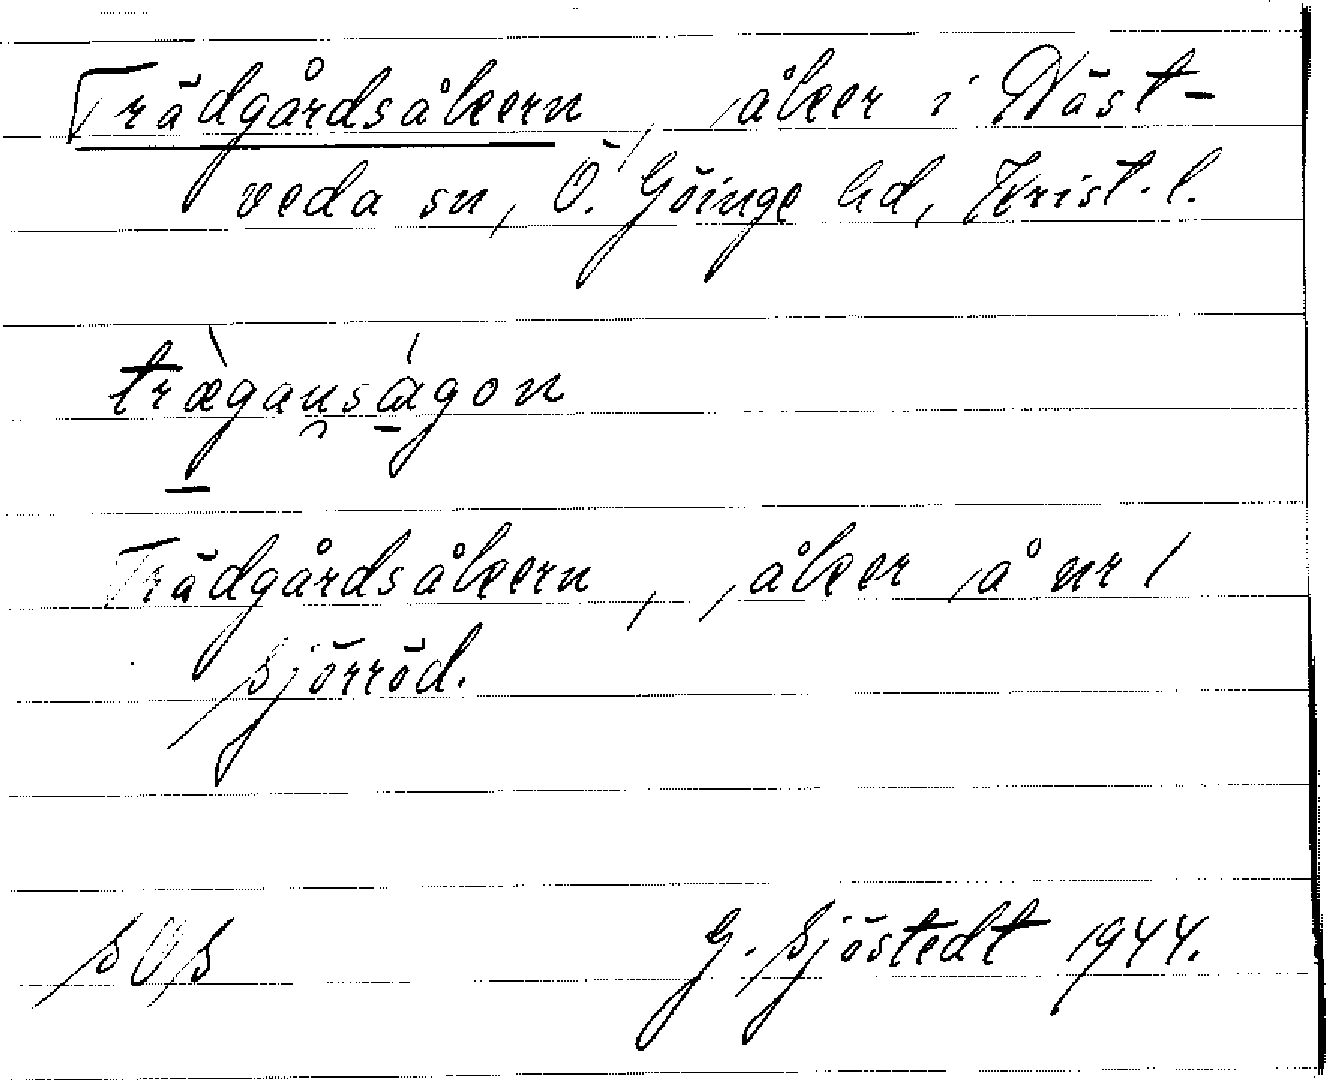 Trädgårdsåkern, åker i Näst-
veda sn, Ö. Göinge hd, Krist. l.
trægansågon
Trädgårdsåkern, åker å nr 1
Sjörröd.
SOS G. Sjöstedt 1944.